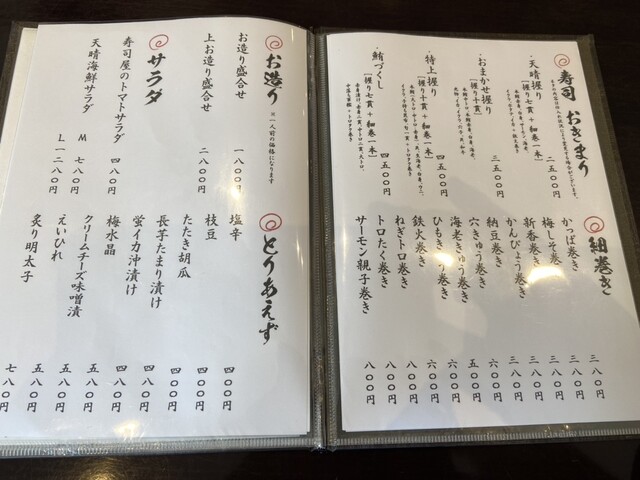 寿司 おきまり
・天晴握り
[握り七貫+細巻一本]
二五〇〇円
・おまかせ握り
三五〇〇円
・特上握り
[握り十貫+細巻一本]
四五〇〇円
・鮪づくし
[握り七貫+細巻一本]
四五〇〇円
細巻き
かっぱ巻き 三八〇円
梅しそ巻き 三八〇円
新香巻き 三八〇円
かんぴょう巻き 三八〇円
納豆巻き 三八〇円
穴きゅう巻き 六〇〇円
海老きゅう巻き 五〇〇円
ひもきゅう巻き 六〇〇円
鉄火巻き 六〇〇円
ねぎトロ巻き 八〇〇円
トロたく巻き 八〇〇円
サーモン親子巻き 八〇〇円
お造り ※一人前の価格になります
お造り盛合せ 一八〇〇円
上お造り盛合せ 二八〇〇円
サラダ
寿司屋のトマトサラダ 四八〇円
天晴海鮮サラダ M 七八〇円
L 一二八〇円
とりあえず
塩辛 四〇〇円
枝豆 四〇〇円
たたき胡瓜 四〇〇円
長芋たまり漬け 四八〇円
蛍イカ沖漬け 四八〇円
梅水晶 五八〇円
クリームチーズ味噌漬 五八〇円
えいひれ 五八〇円
炙り明太子 七八〇円